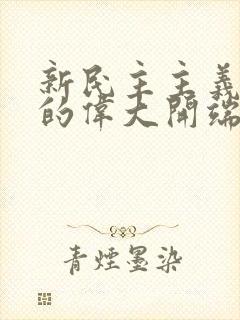 新民主主義
的偉大開端
青煙墨染